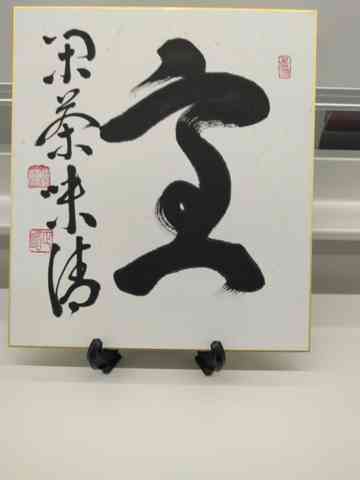 室
閑茶味清